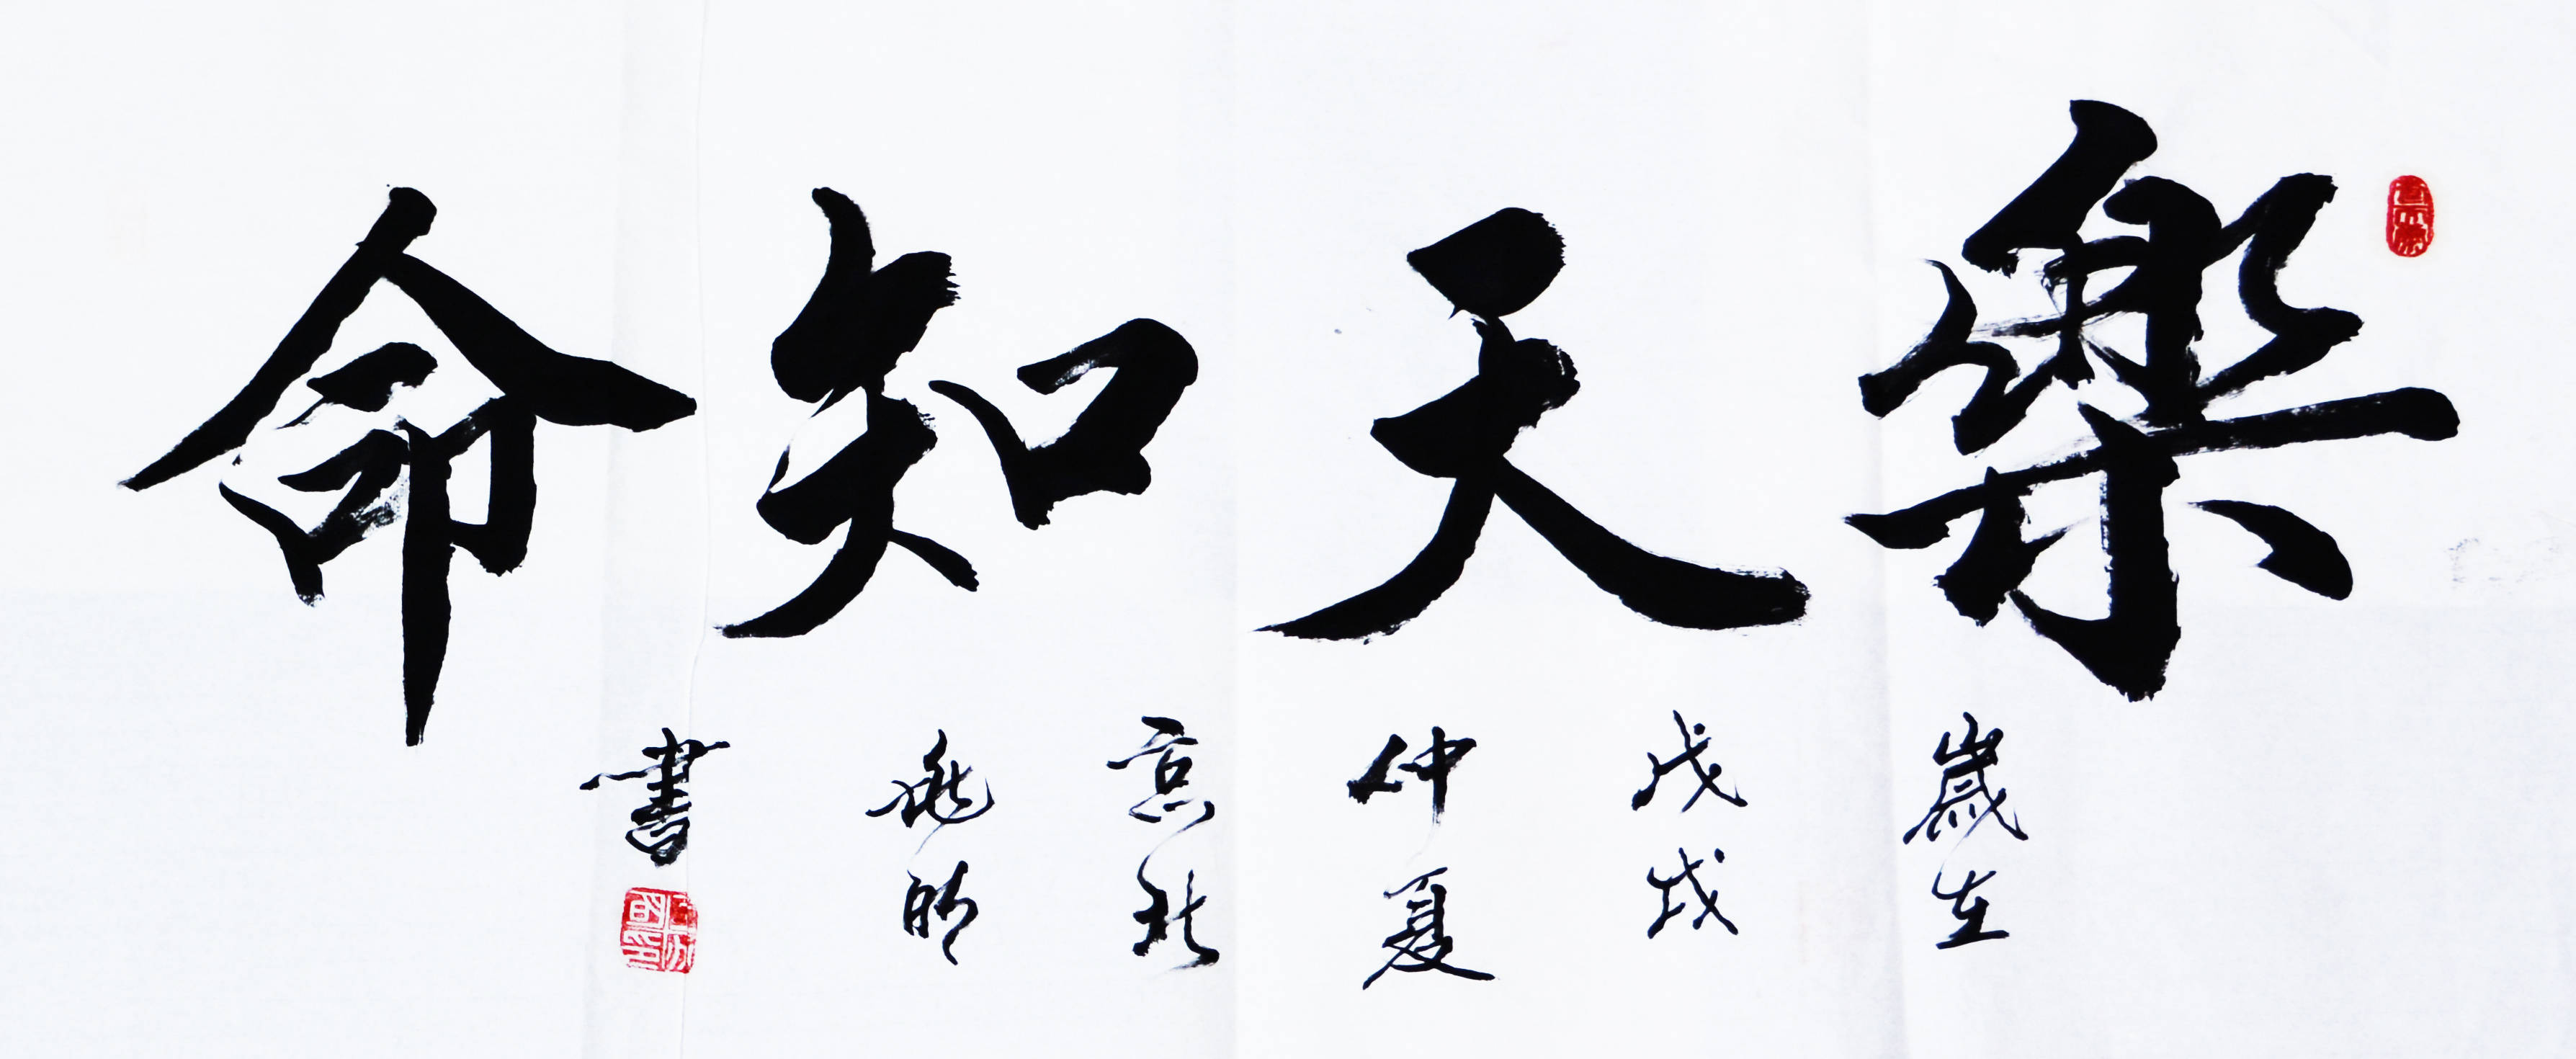 樂天知命
歲在
戊戌
仲夏
京北
兆明
書